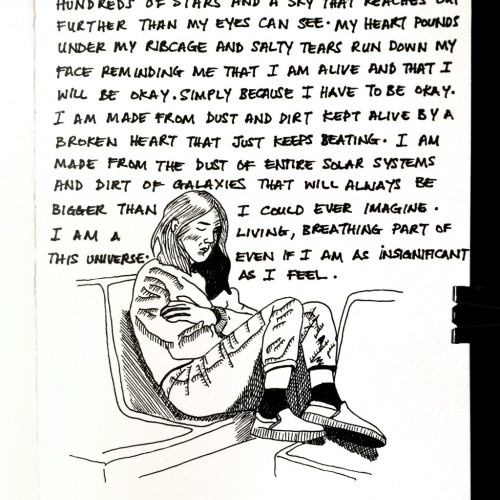 HUNDREDS OF STARS AND A SKY THAT REACHES OUT
FURTHER THAN MY EYES CAN SEE. MY HEART POUNDS
UNDER MY RIBCAGE AND SALTY TEARS RUN DOWN MY
FACE REMINDING ME THAT I AM ALIVE AND THAT I
WILL BE OKAY. SIMPLY BECAUSE I HAVE TO BE OKAY.
I AM MADE FROM DUST AND DIRT KEPT ALIVE BY A
BROKEN HEART THAT JUST KEEPS BEATING. I AM
MADE FROM THE DUST OF ENTIRE SOLAR SYSTEMS
AND DIRT OF GALAXIES THAT WILL ALWAYS BE
BIGGER THAN I COULD EVER IMAGINE.
I AM A LIVING, BREATHING PART OF
THIS UNIVERSE. EVEN IF I AM AS INSIGNIFICANT
AS I FEEL.